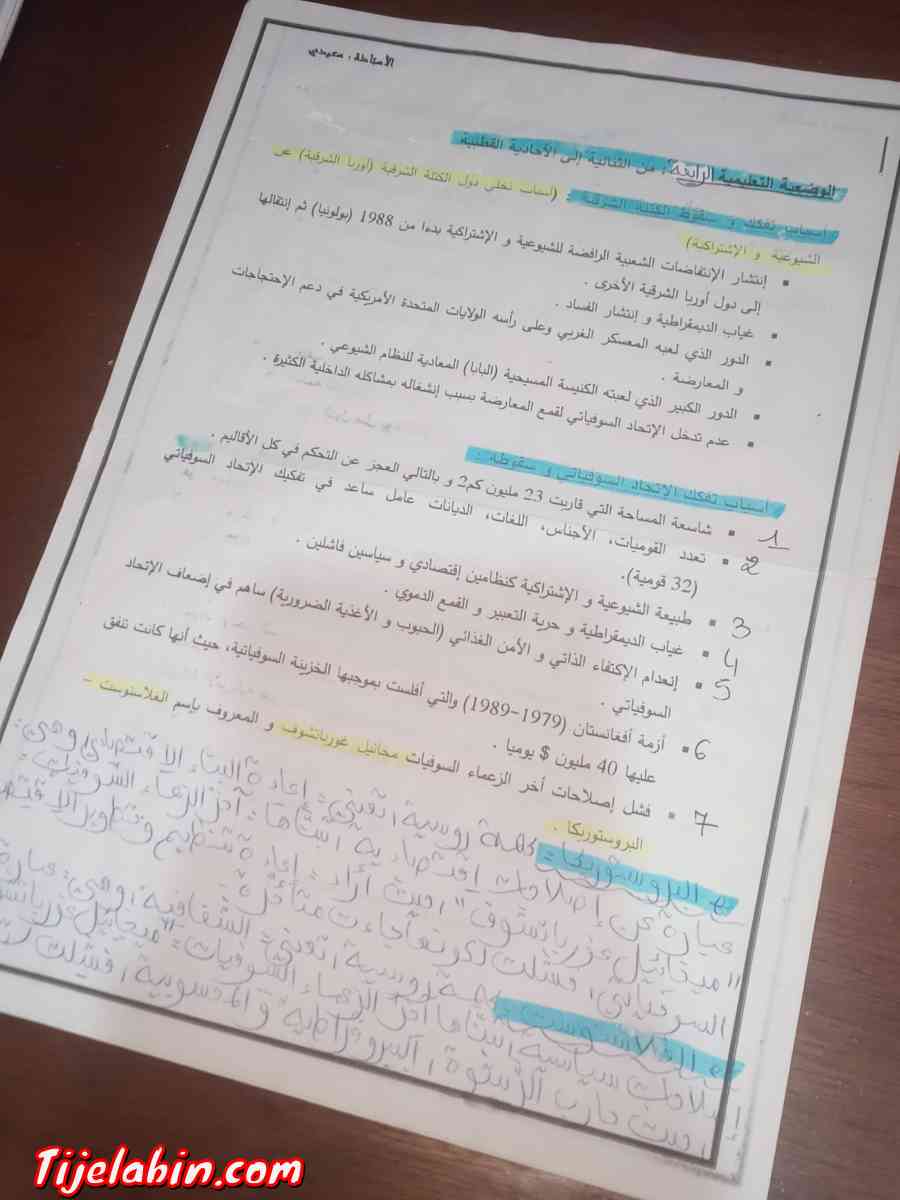 الأستاذة. سعيدي
الوضعية التعليمية الرابعة: من الثنائية إلى الأحادية القطبية
أسباب تفكك و سقوط الكتلة الشرقية : (أسباب تخلي دول الكتلة الشرقية (أوربا الشرقية) عن
الشيوعية و الإشتراكية)
▪ إنتشار الإنتفاضات الشعبية الرافضة للشيوعية و الإشتراكية بدءا من 1988 (بولونيا) ثم إنتقالها
إلى دول أوربا الشرقية الأخرى .
▪ غياب الديمقراطية و إنتشار الفساد .
▪ الدور الذي لعبه المعسكر الغربي وعلى رأسه الولايات المتحدة الأمريكية في دعم الإحتجاجات
و المعارضة .
▪ الدور الكبير الذي لعبته الكنيسة المسيحية (البابا) المعادية للنظام الشيوعي .
▪ عدم تدخل الإتحاد السوفياتي لقمع المعارضة بسبب إنشغاله بمشاكله الداخلية الكثيرة .
أسباب تفكك الاتحاد السوفياتي و سقوطه :
1 ▪ شاسعة المساحة التي قاربت 23 مليون كم2 و بالتالي العجز عن التحكم في كل الأقاليم .
2 ▪ تعدد القوميات، الأجناس، اللغات، الديانات عامل ساعد في تفكيك الإتحاد السوفياتي
(32 قومية).
3 ▪ طبيعة الشيوعية و الإشتراكية كنظامين إقتصادي و سياسين فاشلين .
4 ▪ غياب الديمقراطية و حرية التعبير و القمع الدموي .
5 ▪ إنعدام الإكتفاء الذاتي و الأمن الغذائي (الحبوب و الأغذية الضرورية) ساهم في إضعاف الإتحاد
السوفياتي .
6 ▪ أزمة أفغانستان (1979-1989) والتي أفلست بموجبها الخزينة السوفياتية، حيث أنها كانت تنفق
عليها 40 مليون $ يوميا .
7 ▪ فشل إصلاحات أخر الزعماء السوفيات مخائيل غورباتشوف و المعروف بإسم الغلاسنوست –
البروستوريكا .
البروستريكا: كلمة روسية، تعني: إعادة البناء الإقتصادي وهي:
عبارة عن إصلاحات إقتصادية أنشأها: آخر الزعماء السوفيات:
"ميخائيل غورباتشوف" حيث أراد: إعادة تنظيم وتطوير الإقتصاد
السوفياتي، فشلت لكونها جاءت متأخرة
الغلاسنوست: كلمة روسية، تعني: الشفافية، وهي: عبارة
إصلاحات سياسية أنشأها آخر الزعماء السوفيات: "ميخائيل غورباتشوف
، حيث حارب الرشوة، البيروقراطية والمحسوبية، فشلت
Tijelabin.com